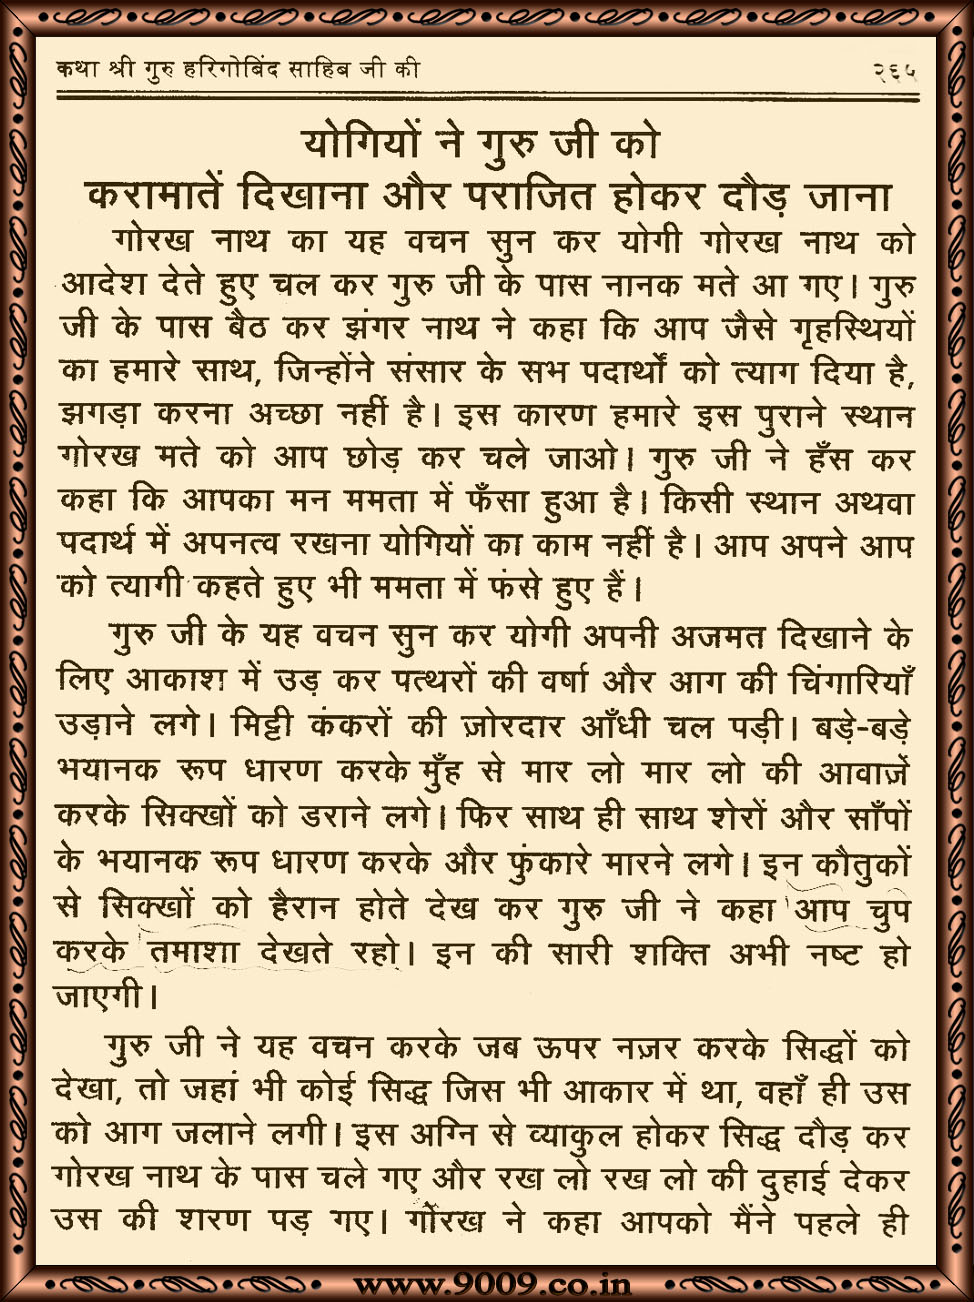 कथा श्री गुरु हरिगोबिंद साहिब जी की २६५
योगियों ने गुरु जी को
करामातें दिखाना और पराजित होकर दौड़ जाना
गोरख नाथ का यह वचन सुन कर योगी गोरख नाथ को
आदेश देते हुए चल कर गुरु जी के पास नानक मते आ गए। गुरु
जी के पास बैठ कर झंगर नाथ ने कहा कि आप जैसे गृहस्थियों
का हमारे साथ, जिन्होंने संसार के सभ पदार्थों को त्याग दिया है,
झगड़ा करना अच्छा नहीं है। इस कारण हमारे इस पुराने स्थान
गोरख मते को आप छोड़ कर चले जाओ। गुरु जी ने हँस कर
कहा कि आपका मन ममता में फँसा हुआ है। किसी स्थान अथवा
पदार्थ में अपनत्व रखना योगियों का काम नहीं है। आप अपने आप
को त्यागी कहते हुए भी ममता में फंसे हुए हैं।
गुरु जी के यह वचन सुन कर योगी अपनी अजमत दिखाने के
लिए आकाश में उड़ कर पत्थरों की वर्षा और आग की चिंगारियाँ
उड़ाने लगे। मिट्टी कंकरों की ज़ोरदार आँधी चल पड़ी। बड़े-बड़े
भयानक रूप धारण करके मुँह से मार लो मार लो की आवाज़ें
करके सिक्खों को डराने लगे। फिर साथ ही साथ शेरों और साँपों
के भयानक रूप धारण करके और फुंकारे मारने लगे। इन कौतुकों
से सिक्खों को हैरान होते देख कर गुरु जी ने कहा आप चुप
करके तमाशा देखते रहो। इन की सारी शक्ति अभी नष्ट हो
जाएगी।
गुरु जी ने यह वचन करके जब ऊपर नज़र करके सिद्धों को
देखा, तो जहां भी कोई सिद्ध जिस भी आकार में था, वहाँ ही उस
को आग जलाने लगी। इस अग्नि से व्याकुल होकर सिद्ध दौड़ कर
गोरख नाथ के पास चले गए और रख लो रख लो की दुहाई देकर
उस की शरण पड़ गए। गोरख ने कहा आपको मैंने पहले ही
www.9009.co.in